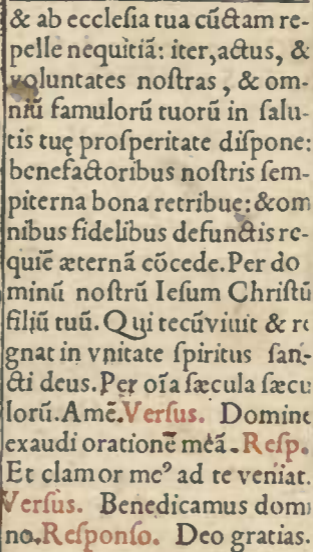 & ab ecclesia tua cūctam re-
pelle nequitiā: iter,actus, &
voluntates nostras, & om-
niū famulorū tuorū in salu-
tis tuę prosperitate dispone:
benefactoribus nostris sem-
piterna bona retribue: &om
nibus fidelibus defunctis re-
quiē æternā cōcede. Per do
minū nostrū Iesum Christū
filiū tuū. Qui tecūviuit & re
gnat in vnitate spiritus san-
cti deus. Per oīa sæcula sæcu
lorū. Amē. Versus. Domine
exaudi orationē meā. Resp.
Et clamor meꝰ ad te veniat.
Versus. Benedicamus domi
no. Responso. Deo gratias.